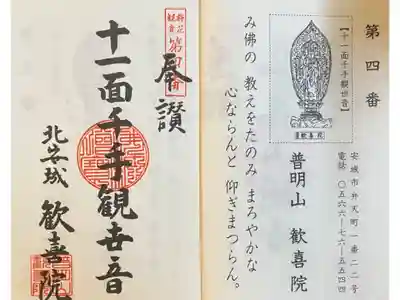 第四番
【十一面千手観世音】
歓喜院
安城市弁天町一番二二号
電話 〇五六六-七六-五五四四
普明山 歓喜院
み佛の 教えをたのみ まろやかな
心ならんと 仰ぎまつらん。
奉讃
十一面千手観世音
北安城 歓喜院